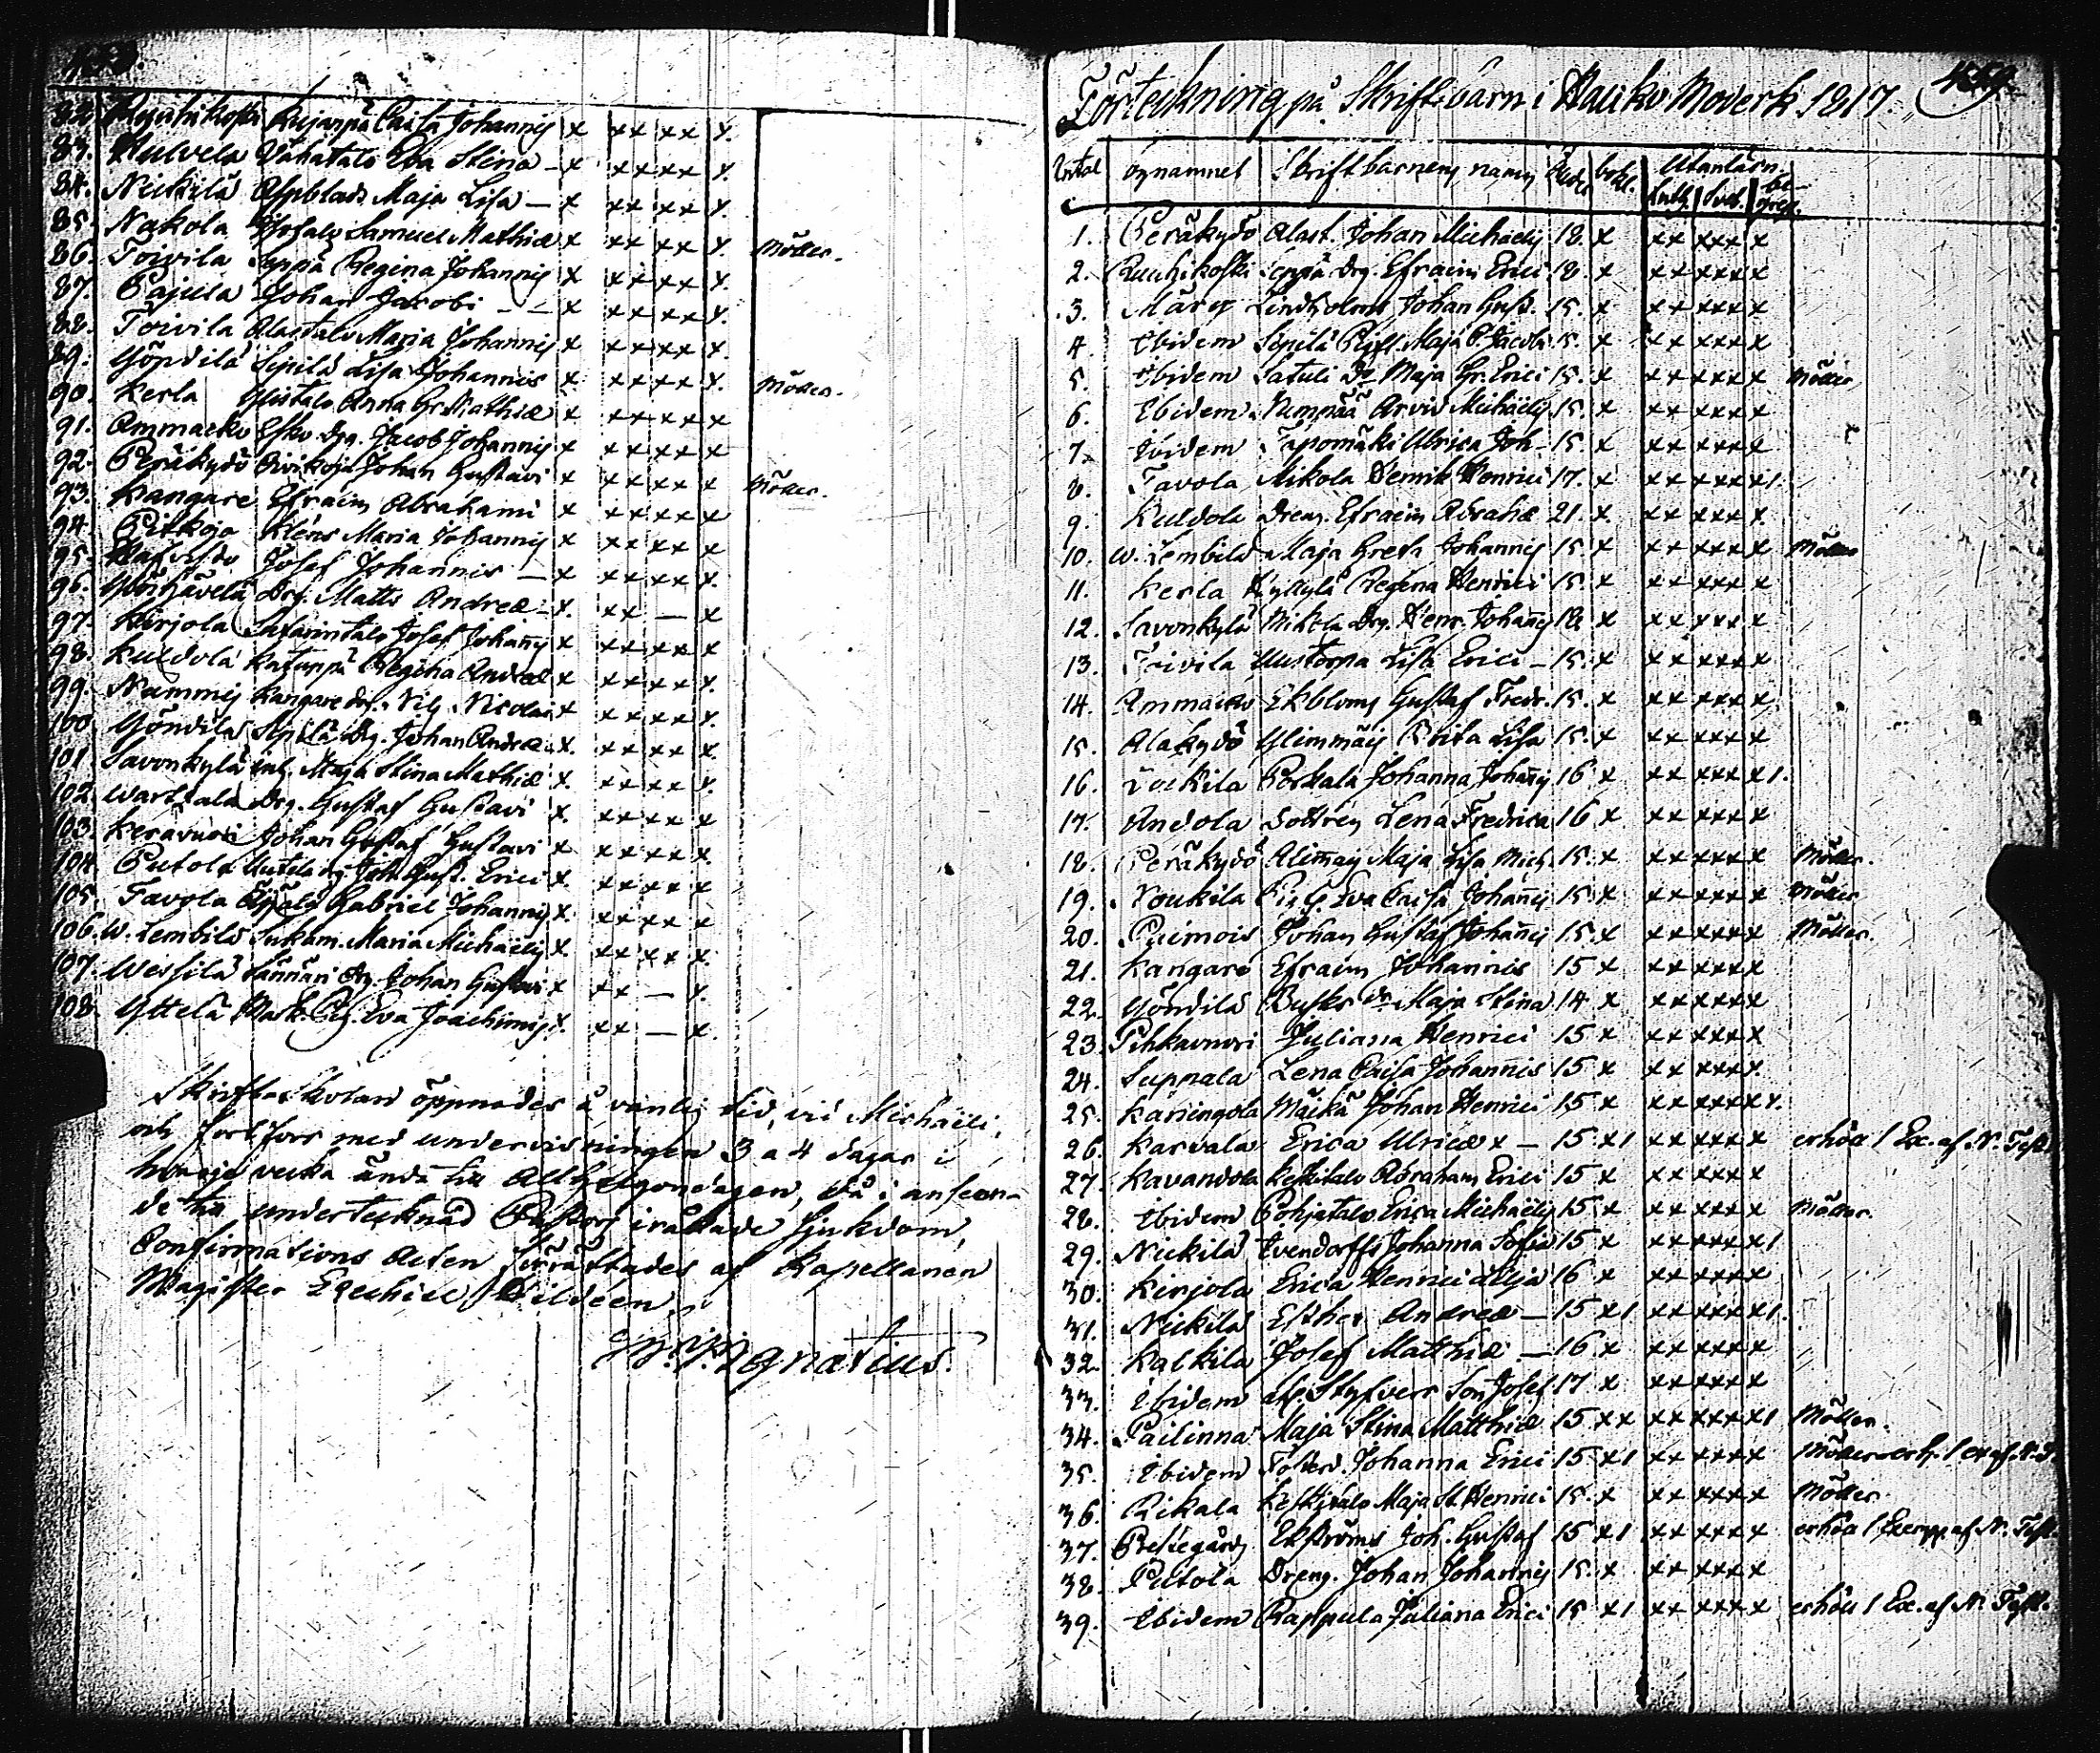 82. Ruuhikoski Kujanpä Caisa Johannis x xx xx x.
83. Kulvela Vähatalo Eva Stina – x xx xx x.
84. Nickilä Maja Lisa – x xx xx x.
85. Nakola Samuel Mathiæ x xx xx x. Möller.
86. Toivila Seppä Regina Johannis x xx xx x.
87. Pajula Johan Jacobi – – x xx xx x.
88. Toivila Alastalo Maria Johannis x xx xx x.
89. Yöndilä Sipilä Lisa Johannis x xx xx x. Möller.
90. Kerla Ylistalo Anna Gr. Mathiæ x xx xx x
91. Ammaeko Esko drg. Jacob Johannis x xx xx x
92. Peräkydö Johan Gustavi x xx xx x Möller.
93. Kangare Efraim Abrahami x xx xx x
94. Pitkojo Maria Johannis x xx xx x
95. Josef Johannis – x xx xx x.
96. Drg. Matts Andreæ – x. xx – x
97. Kirjola Josef Johannis x xx xx x
98. Kuldola Regina Andreæ x xx xx x.
99. Nummis Kangare dr. Nils Nicolai x xx xx x.
100 Yöndilä Sipilä drg. Johan Andreæ x. xx xx x.
101 Savonkylä Maja Stina Mathiæ x. xx xx x.
102. Wartsala Drg. Gustaf Gustavi x. xx xx x
103. Keravuori Johan Gustaf Gustavi x xx xx x
104. Putola Uutela dr. Joh. Gust. Erici x. xx xx x
105. Tavola Äijälä Gabriel Johannis x. xx xx x
106. W. Lembilä Maria Michaëlis x. xx xx x.
107. Wessilä Sännäri Dr. Johan Gustavi x xx – x.
108. Yttelä Pig. Eva Joachimi x. xx – x.
Skrifte Skolan öppnades å vanlig tid, vid Michaëli,
och fortfors med undervisningen 3 a 4 dagar i
hvarje vecka ända till Allhelgonadagen, då i anseen-
de till undertecknad Pastors iråkade sjukdom,
Confirmations Acten förrättades af Kapellanen
Magister Ezechiel Hildeen.
Ignatius.
Förteckning på Skriftebarn i Hauko Moderk. 1817. 459.
Antal Bynamnet Skriftbarnens namn Ålder bokl. Utanlärn.
Luth. Sveb. be-
grep.
1. Peräkydö Alast. Johan Michaelis 18. x xx xxx x
2. Ruuhikoski Seppä drg. Efraim Erici 18. x xx xxx x
3. Märy Lindholms Johan Gust. 15. x xx xxx x
4. Ibidem Sipilä Maja C. Jacobi 15. x xx xxx x
5. Ibidem Satuli Do Maja Gr. Erici 15. x xx xxx x Möller
6. Ibidem Numpää Arvid Michaëlis 15. x xx xxx x
7. Ibidem Tapomäki Ulrica Joh. 15 x xx xxx x
8. Tavola Mikola Henrik Henrici 17. x xx xxx x1.
9. Kuldola Dreng. Efraim Abrahæ 21. x xx xxx x.
10. W. Lembilä Maja Greta Johannis 15 x xx xxx x Möller
11. Kerla Kyllylä Regina Henrici 15. x xx xxx x
12. Savonkylä Mikola Drg. Henr. Johannis 18 x xx xxx x
13. Toivila Uustorpa Lisa Erici – 15. x xx xxx x
14. Ammaeko Ekbloms Gustaf Fredr. 15. x xx xxx x.
15. Alakydö Brita Lisa 15. x xx xxx x
16. Porkala Johanna Johannis 16 x xx xxx x1.
17. Andola Lena Fredrica 16 x xx xxx x
18. Peräkydö Maja Lisa Mich. 15. x xx xxx x Möller.
19. Noukila Eva Caisa Johannis 15 x xx xxx x Möller
20. Raimois Johan Gustaf Johannis 15. x xx xxx x Möller.
21. Kangare Efraim Johannis 15 x xx xxx x
22. Yöndilä Busks dr. Maja Stina 14 x xx xxx x
23. Pihkavuori Juliana Henrici 15 x xx xxx x
24. Suppala Lena Caisa Johannis 15 x xx xxx x.
25. Kariengola Mäikä Johan Henrici 15 x xx xxx x x.
26. Karvala Erica Ulricæ x – 15. x1 xx xxx x erhöll 1 Ex. af N. Test.
27. Kavandola Keskitalo Abraham Erici 15 x xx xxx x
28. Ibidem Pohjatalo Erica Michaëlis 15 x xx xxx x Möller.
29. Nickilä Johanna Sofia 15 x xx xxx x1
30. Kirjola Erica Henrici 16 x xx xxx x
31. Nickilä Esther Andreæ – 15 x1 xx xxx x1.
32. Kalkila Josef Matthiæ. – 16 x xx xxx x
33. Ibidem Son Josef 17 x xx xxx x
34. Pailinna Maja Stina Matthiæ 15 xx xx xxx x1 Möller.
35. Ibidem Johanna Erici 15 x1 xx xxx x Möller erh. 1 ex. af N. T.
36. Rikala Keskitalo Maja St. Henrici 15. x xx xxx x Möller.
37. Prestegårds Ekströms Joh. Gustaf 15 x1 xx xxx x erhöll 1 Exempl. af N. Test.
38. Putola Dreng. Johan Johannis 15. x xx xxx x
39. Ibidem Rappula Juliana Erici 15 x1 xx xxx x erhöll 1 Ex. af N. Test.